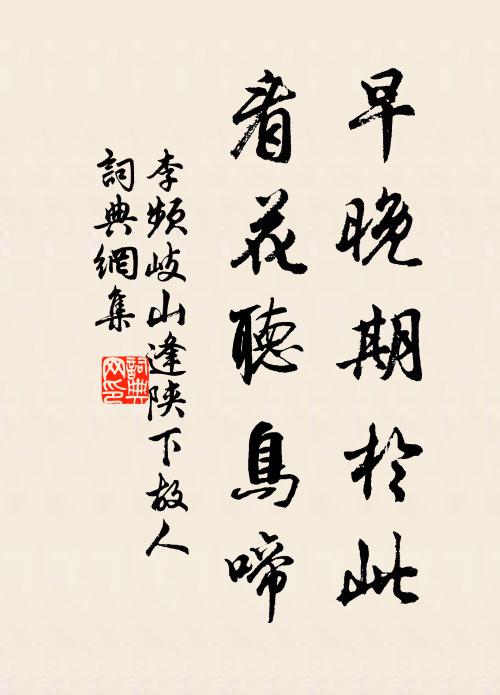 早晚期於此
看花聽鳥啼
李頻岐山逢陕下故人
詞典網集
詞典网印